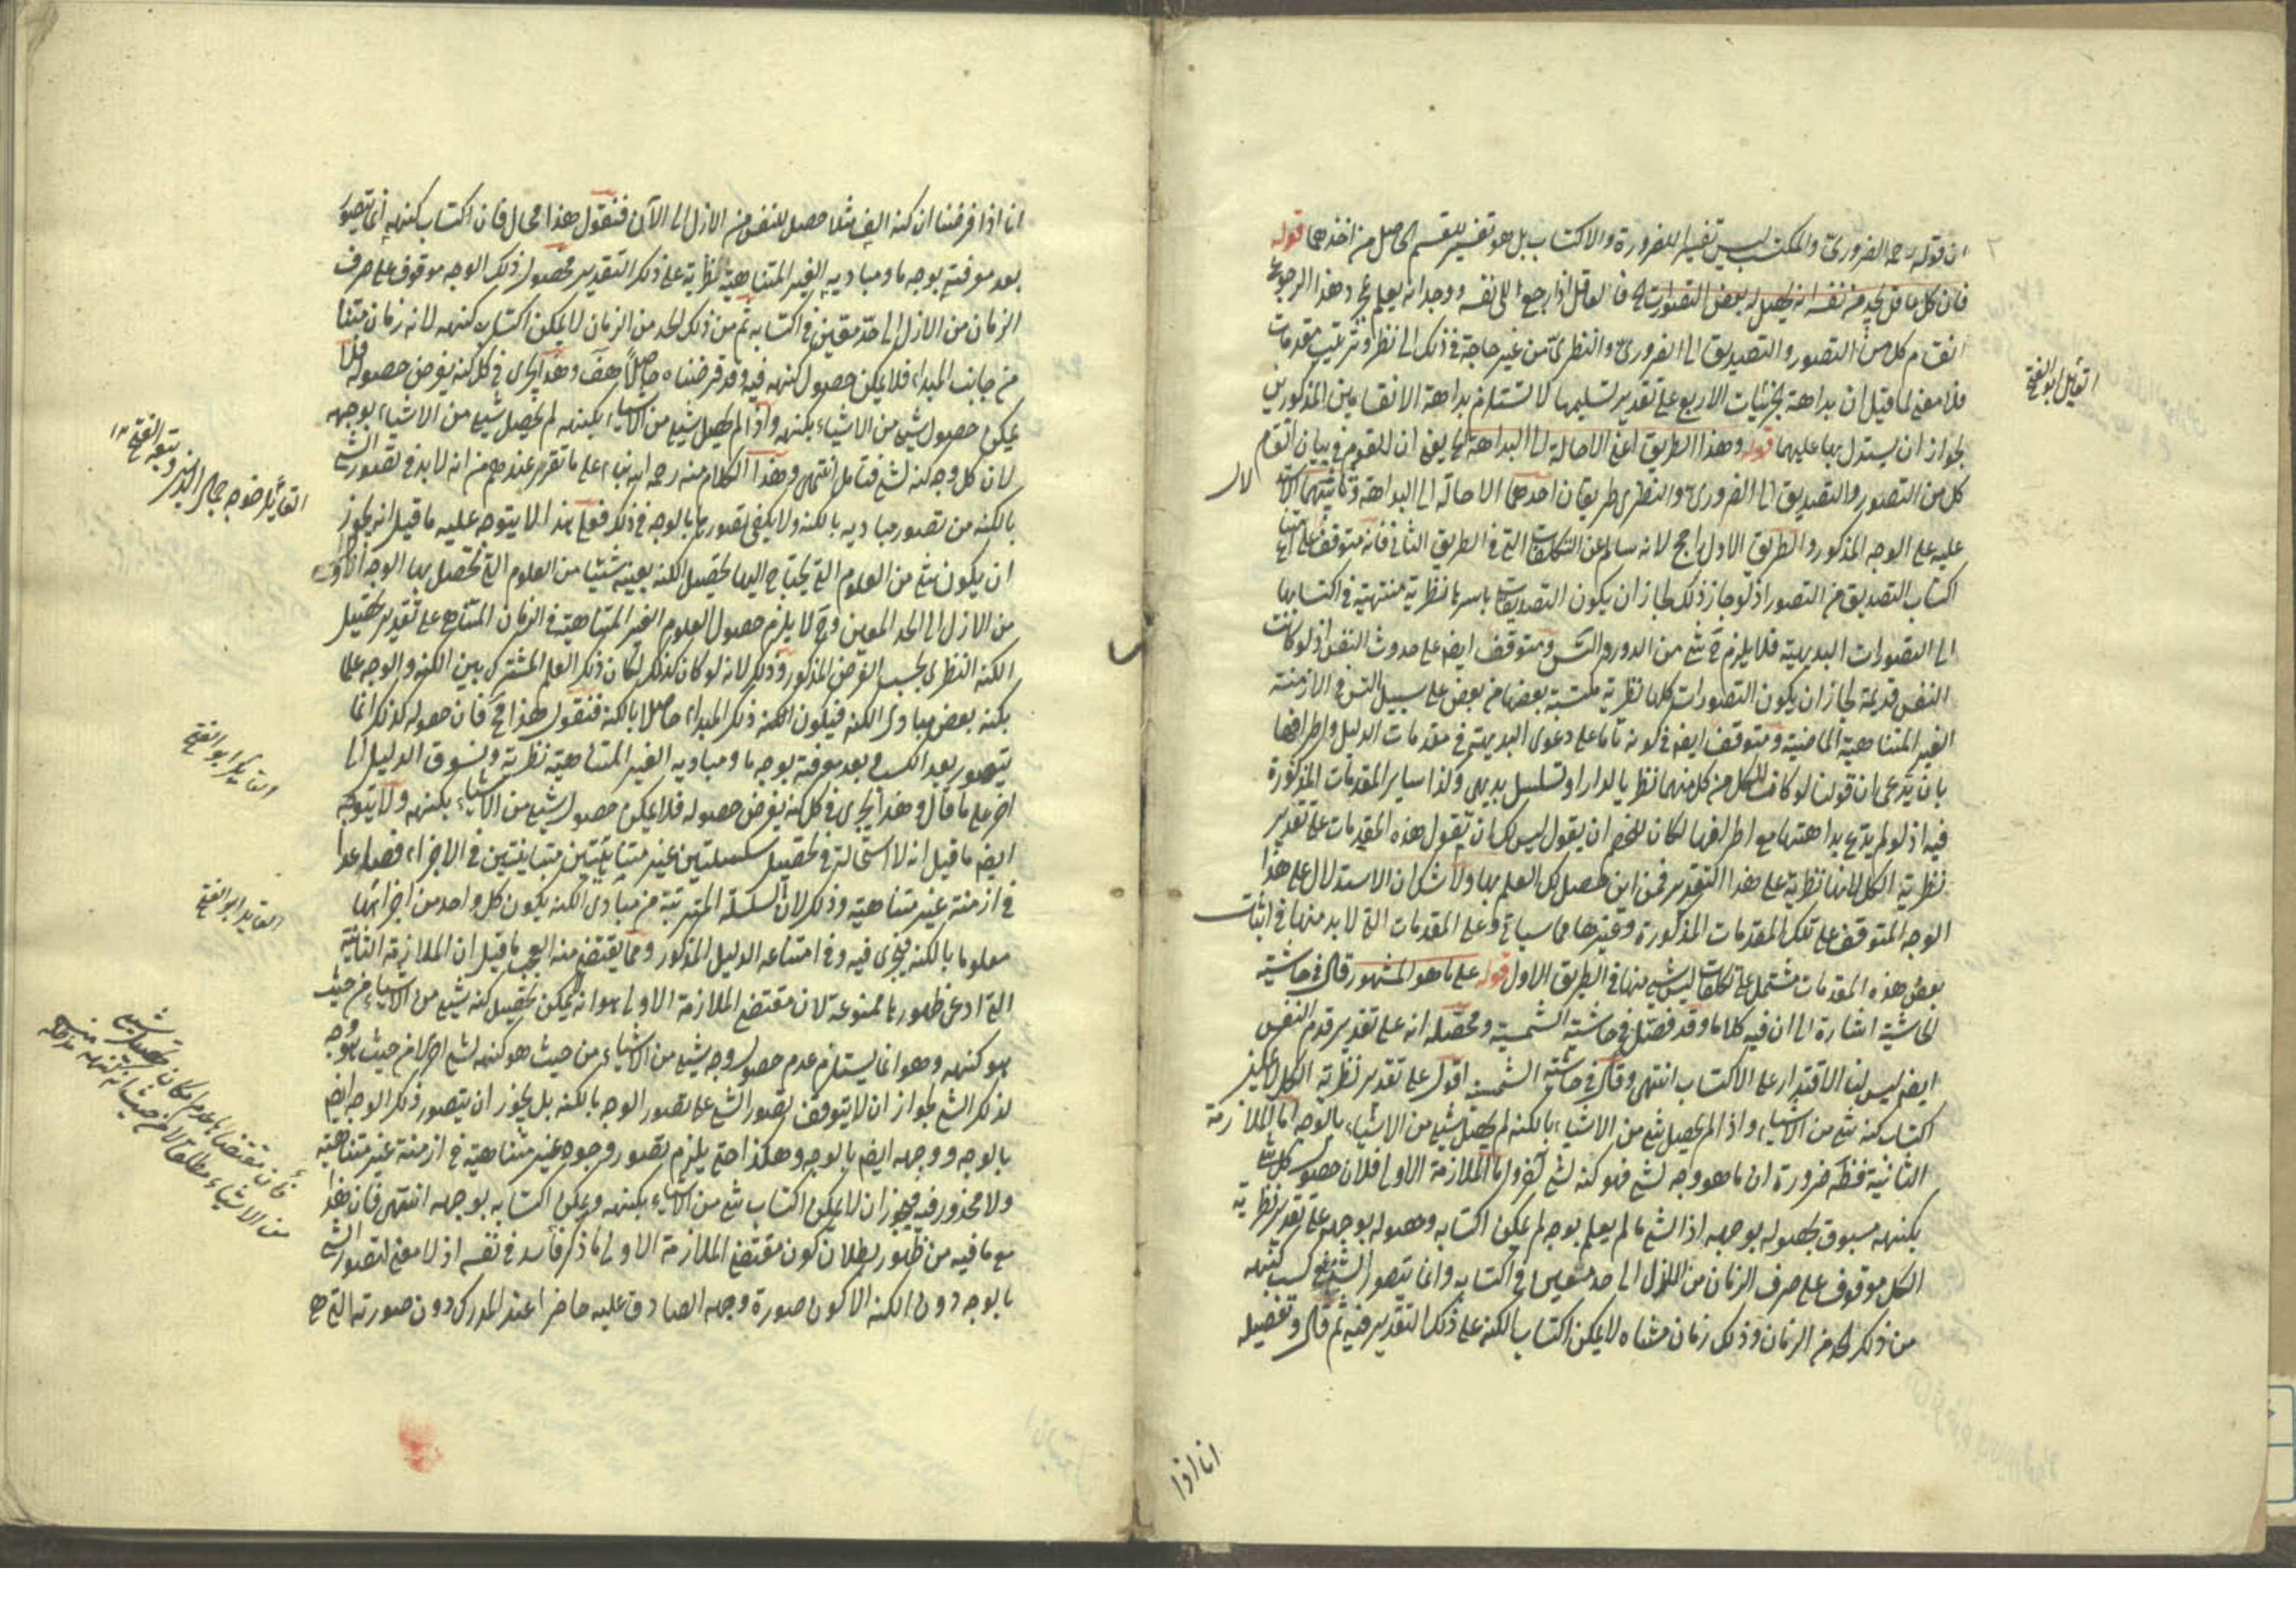 ان قوله رحمه الضرورى والمكتسب ليس تفسيرا للضرورة والاكتساب بل هو تفسير للقسم الحاصل من اخذهما قوله
فان كل عاقل يجد من نفسه انه يحصل له بعض التصورات الخ فالعاقل اذا رجع الى نفسه ووجدانه يعلم بمجرد هذا الرجوع
انقسام كل من التصور والتصديق الى الضرورى والنظرى من غير حاجة فى ذلك الى نظر وترتيب مقدمات
القائل ابو الفتح
فلا معنى لما قيل ان بداهة الجزئيات الاربع على تقدير تسليمها لا تستلزم بداهة الانقسامين المذكورين
لجواز ان يستدل بها عليهما قوله وهذا الطريق اعنى الاحالة الى البداهة الخ يعنى ان للقوم فى بيان انقسام
كل من التصور والتصديق الى الضرورى والنظرى طريقان احدهما الاحالة الى البداهة وثانيتهما الاستدلال
عليه على الوجه المذكور والطريق الاول راجح لانه سالم عن التكلفات التى فى الطريق الثانى فانه متوقف على امتناع
اكتساب التصديق من التصور اذ لو جاز ذلك لجاز ان يكون التصديقات باسرها نظرية منتهية فى اكتسابها
الى التصورات البديهية فلا يلزم ح شئ من الدور والتس ومتوقف ايضا على حدوث النفس اذ لو كانت
النفس قديمة لجاز ان يكون التصورات كلها نظرية مكتسبة بعضها من بعض على سبيل التس فى الازمنة
الغير المتناهية الماضية ومتوقف ايضا فى كونه تاما على دعوى البديهة فى مقدمات الدليل واطرافها
بان يدعى ان قولنا لو كانت الكل من كل منهما نظريا لدار او تسلسل بديهى وكذا ساير المقدمات المذكورة
فيه اذ لو لم يدع بداهتها مع اطرافها لكان للخصم ان يقول ليس لك ان تقول هذه المقدمات على تقدير
نظرية الكل لانها نظرية على هذا التقدير فمن اين حصل لك العلم بها ولا شك ان الاستدلال على هذا
الوجه المتوقف على تلك المقدمات المذكورة وغيرها مما سياتى وعلى المقدمات التى لا بد منها فى اثبات
بعض هذه المقدمات مشتمل على تكلفات ليس شئ منها فى الطريق الاول قوله على ما هو المشهور قال فى حاشية
الحاشية اشارة الى ان فيه كلاما وقد فصل فى حاشية الشمسية ومحصله انه على تقدير قدم النفس
ايضا ليس لنا الاقتدار على الاكتساب انتهى وقال فى حاشية الشمسية اقول على تقدير نظرية الكل لا يمكن
اكتساب كنه شئ من الاشياء واذا لم يحصل شئ من الاشياء بالكنه لم يحصل شئ من الاشياء بالوجه اما الملازمة
الثانية فظة ضرورة ان ما هو وجه لشئ فهو كنه لشئ آخر واما الملازمة الاولى فلان حصول كل شئ
بكنهه مسبوق بحصوله بوجهه اذ الشئ ما لم يعلم بوجه لم يمكن اكتسابه وحصوله بوجهه على تقدير نظرية
الكل موقوف على صرف الزمان من الازل الى حد معين فى اكتسابه وانما يتصور الشروع فى كسب كنهه
من ذلك الحد من الزمان وذلك زمان متناه لا يمكن اكتساب الكنه على ذلك التقدير فيه ثم قال وتفصيله
انا اذا
انا اذا فرضنا ان كنه الف مثلا حصل للنفس من الازل الى الآن فنقول هذا محال فان اكتساب كنهه انما يتصور
بعد معرفته بوجه ما ومباديه الغير المتناهية نظرية على ذلك التقدير فحصول ذلك الوجه موقوف على صرف
الزمان من الازل الى حد معين فى اكتسابه ثم من ذلك الحد من الزمان لا يمكن اكتساب كنهه لانه زمان متناه
من جانب المبداء فلا يمكن حصول كنهه فيه وقد فرضناه حاصلا هف وهذا يجرى فى كل كنه يفرض حصوله فلا
يمكن حصول شئ من الاشياء بكنهه واذا لم يحصل شئ من الاشياء بكنهه لم يحصل شئ من الاشياء بوجهه
لان كل وجه كنه لشئ فتامل انتهى وهذا الكلام منه رحمه الله بناء على ما تقرر عندهم من انه لا بد فى تصور الشئ
القائل خوجه جمال الدين وتبعه ابو الفتح
بالكنه من تصور مباديه بالكنه ولا يكفى تصورها بالوجه فى ذلك فعلى هذا لا يتوجه عليه ما قيل انه يجوز
ان يكون شئ من العلوم التى يحتاج اليها تحصيل الكنه بعينه شيئا من العلوم التى تحصل بها الوجه
من الازل الى الحد المعين وح لا يلزم حصول العلوم الغير المتناهية فى الزمان المتناهى على تقدير تحصيل
الكنه النظرى بحسب الفرض المذكور وذلك لانه لو كان كذلك لكان ذلك العلم المشترك بين الكنه والوجه علما
بكنه بعض مبادى الكنه فيكون الكنه ذلك المبداء حاصلا بالكنه فنقول هذا مح فان حصوله كذلك انما
القائل ابو الفتح
يتصور بعد الكسب وبعد معرفته بوجه ما ومباديه الغير المتناهية نظرية ونسوق الدليل الى
اخره على ما قال وهذا يجرى فى كل كنه يفرض حصوله فلا يمكن حصول شئ من الاشياء بكنهه ولا يتوجه
ايضا ما قيل انه لا استحالة فى تحصيل سلسلتين غير متناهيتين متباينتين فى الاجزاء فصاعدا
القايل ابو الفتح
فى ازمنة غير متناهية وذلك لان السلسلة المترتبة من مبادى الكنه يكون كل واحد من اجزائها
معلوما بالكنه فيجرى فيه وفى امتناعه الدليل المذكور ومما يقتضى منه العجب ما قيل ان الملازمة الثانية
التى ادعى ظهورها ممنوعة لان مقتضى الملازمة الاولى هو انه لا يمكن تحصيل كنه شئ من الاشياء من حيث
هو كنهه وهو انما يستلزم عدم حصول وجه شئ من الاشياء من حيث هو كنهه لشئ اخر لا من حيث هو وجه
لذلك الشئ لجواز ان لا يتوقف تصور الشئ على تصور الوجه بالكنه بل يجوز ان يتصور ذلك الوجه ايضا
بالوجه ووجهه ايضا بالوجه وهكذا حتى يلزم تصور وجوه غير متناهية فى ازمنة غير متناهية
ولا محذور فيه فيجوز ان لا يمكن اكتساب شئ من الاشياء بكنهه ويمكن اكتسابه بوجهه انتهى فان هذا
فان مقتضاها عدم امكان تحصيل شئ
من الاشياء مطلقا لا من حيث انه كنهه
مع ما فيه من ظهور بطلان كون مقتضى الملازمة الاولى ما ذكر فاسد فى نفسه اذ لا معنى لتصور الشئ
بالوجه دون الكنه الا كون صورة وجهه الصادق عليه حاضرا عند المدرك دون صورته التى هى